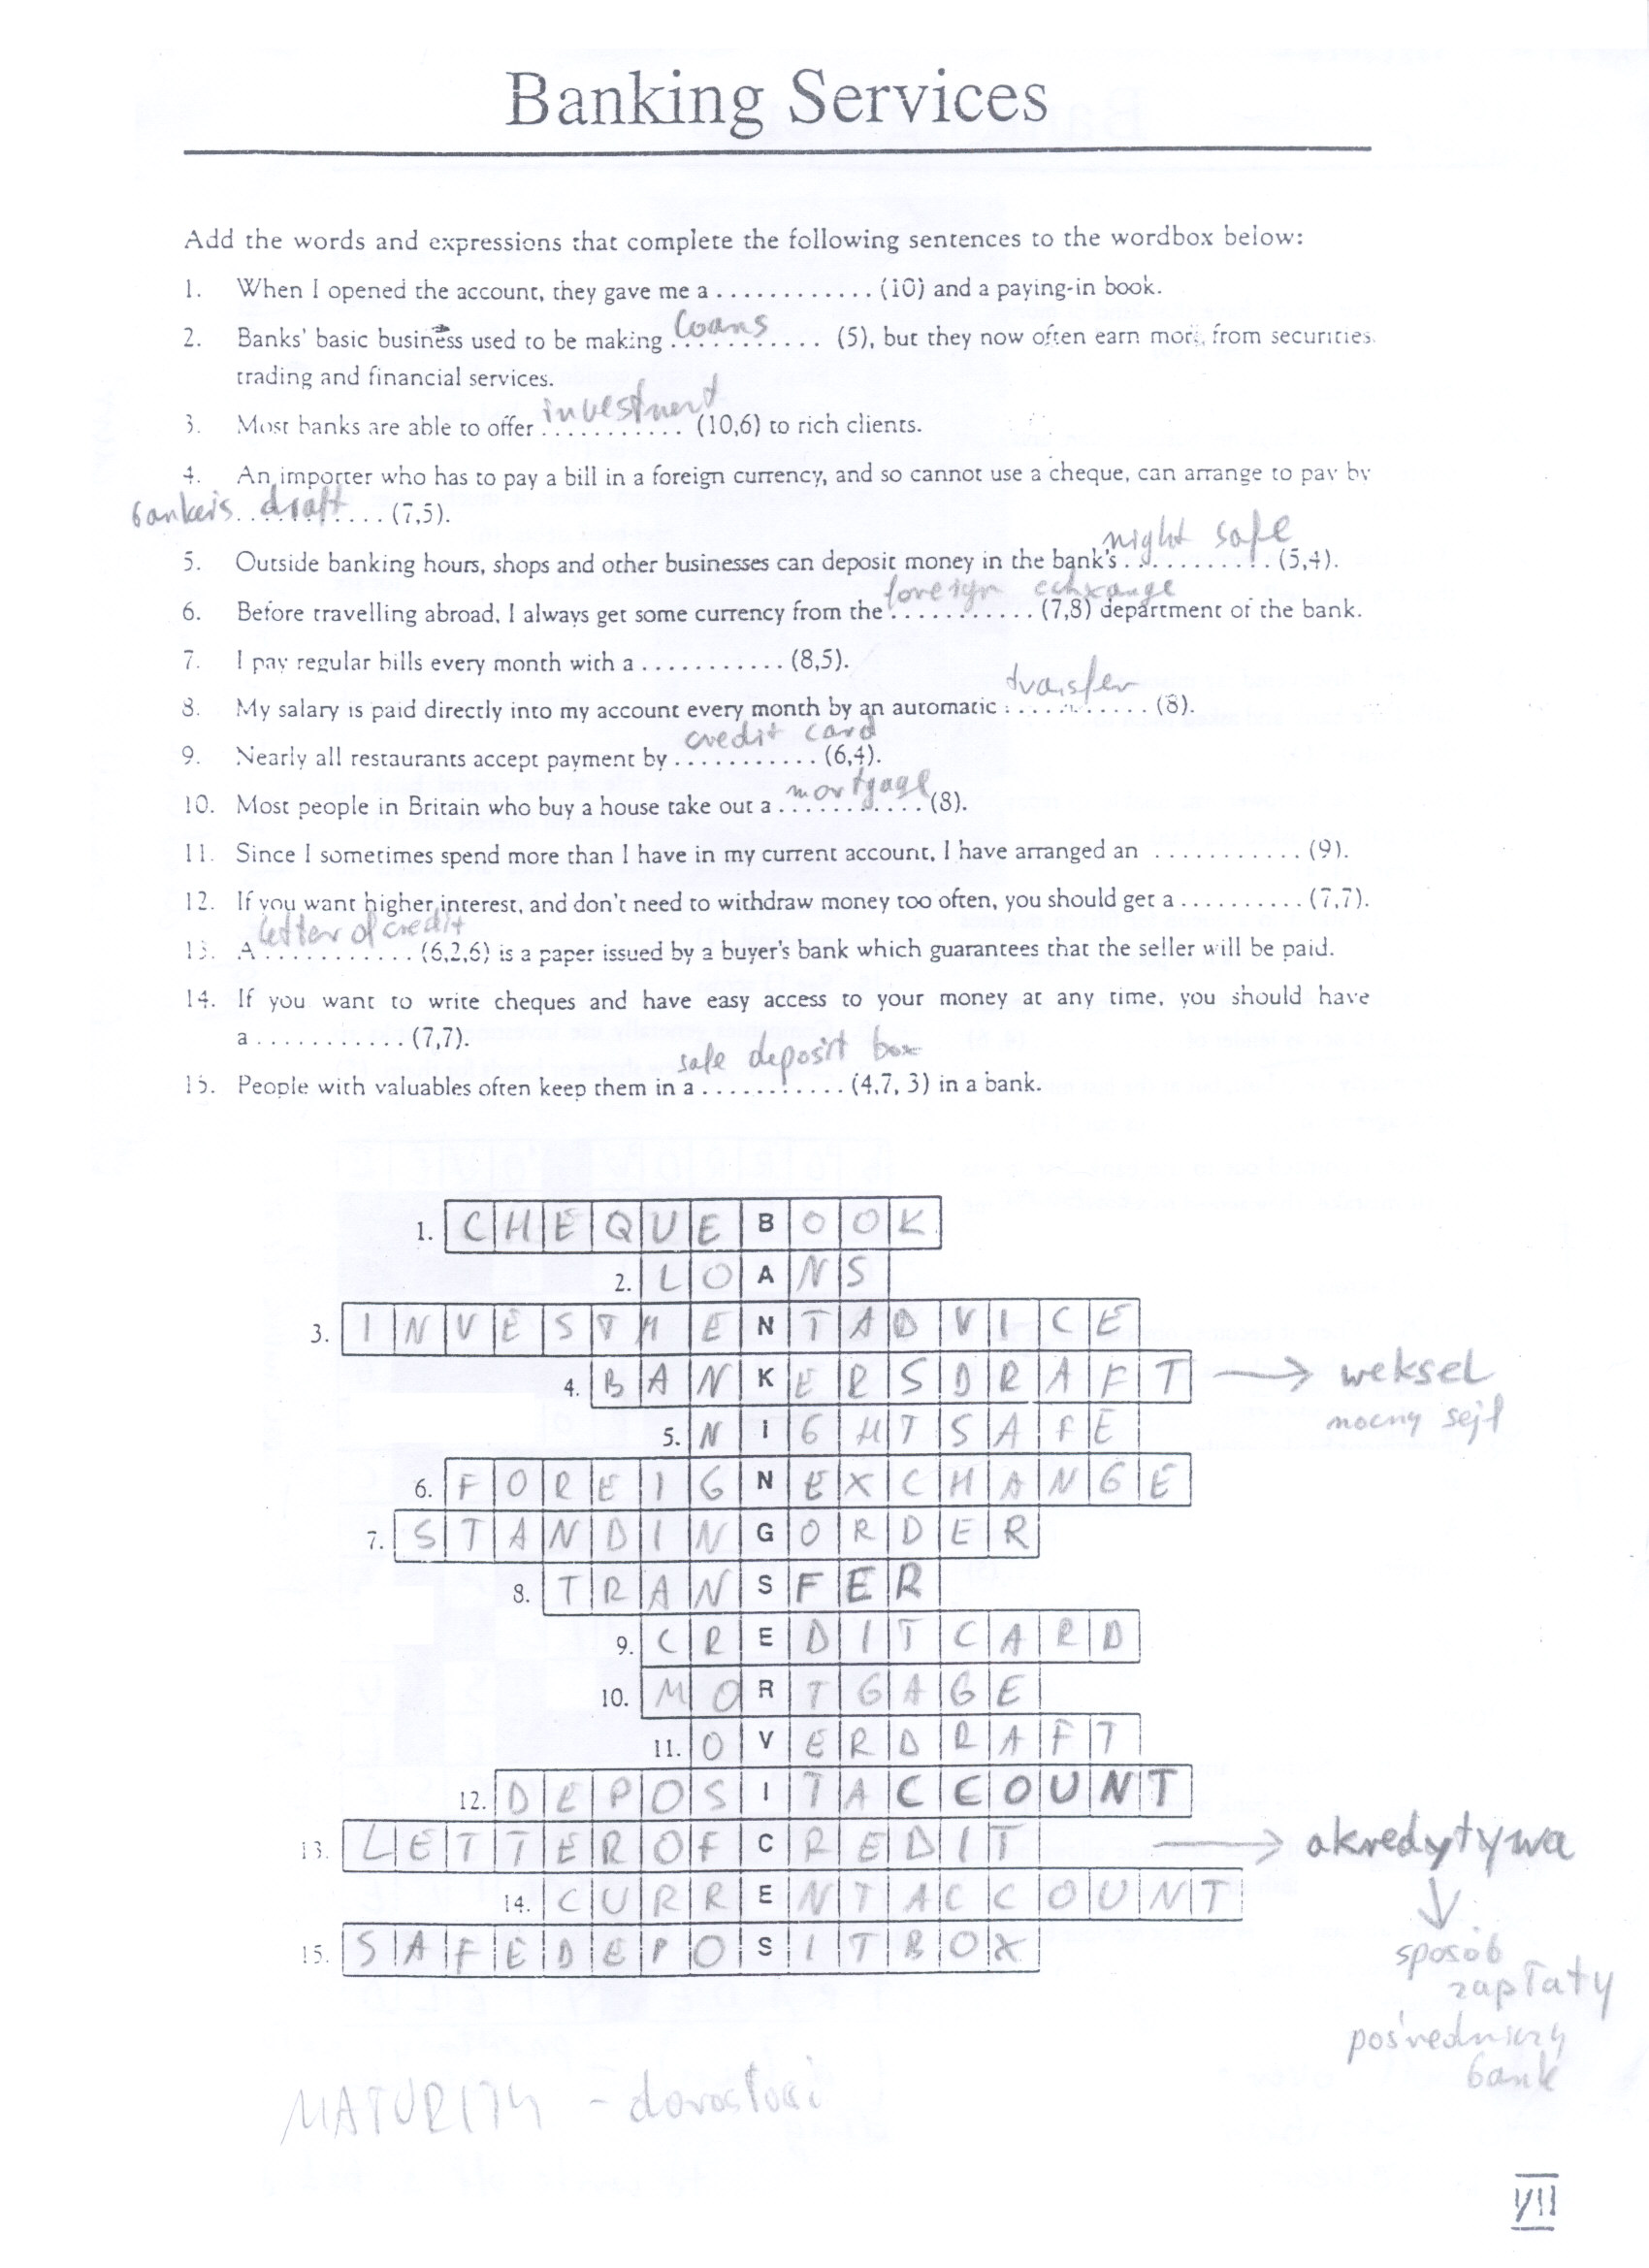 Banking Services
Add the words and expressions that complete the following sentences to the wordbox below:
1. When I opened the account, they gave me a ............ (10) and a paying-in book.
2. Banks' basic business used to be making loans ............ (5), but they now often earn more from securities
trading and financial services.
3. Most banks are able to offer investment ........... (10,6) to rich clients.
4. An importer who has to pay a bill in a foreign currency, and so cannot use a cheque, can arrange to pay by
banker's draft ........... (7,5).
5. Outside banking hours, shops and other businesses can deposit money in the bank's night safe ........... (5,4).
6. Before travelling abroad, I always get some currency from the foreign echxange ........... (7,8) department of the bank.
7. I pay regular bills every month with a ........... (8,5).
8. My salary is paid directly into my account every month by an automatic transfer ........... (8).
9. Nearly all restaurants accept payment by credit card ........... (6,4).
10. Most people in Britain who buy a house take out a mortgage ........... (8).
11. Since I sometimes spend more than I have in my current account, I have arranged an ........... (9).
12. If you want higher interest, and don't need to withdraw money too often, you should get a .......... (7,7).
13. A letter of credit ........... (6,2,6) is a paper issued by a buyer's bank which guarantees that the seller will be paid.
14. If you want to write cheques and have easy access to your money at any time, you should have
a ........... (7,7).
15. People with valuables often keep them in a safe deposit box ........... (4,7, 3) in a bank.
1. CHEQUEBOOK
2. LOANS
3. INVESTMENTADVICE
4. BANKERSDRAFT → weksel
5. NiGHTSAFE nocny sejf
6. FOREIGNEXCHANGE
7. STANDINGORDER
8. TRANSFER
9. CREDITCARD
10. MORTGAGE
11. OVERDRAFT
12. DEPOSITACCOUNT
13. LETTEROFCREDIT → akredytywa
14. CURRENTACCOUNT
15. SAFEDEPOSITBOX
sposób
zapłaty
pośredniczy
bank
MATURITY - dorosłość
VII